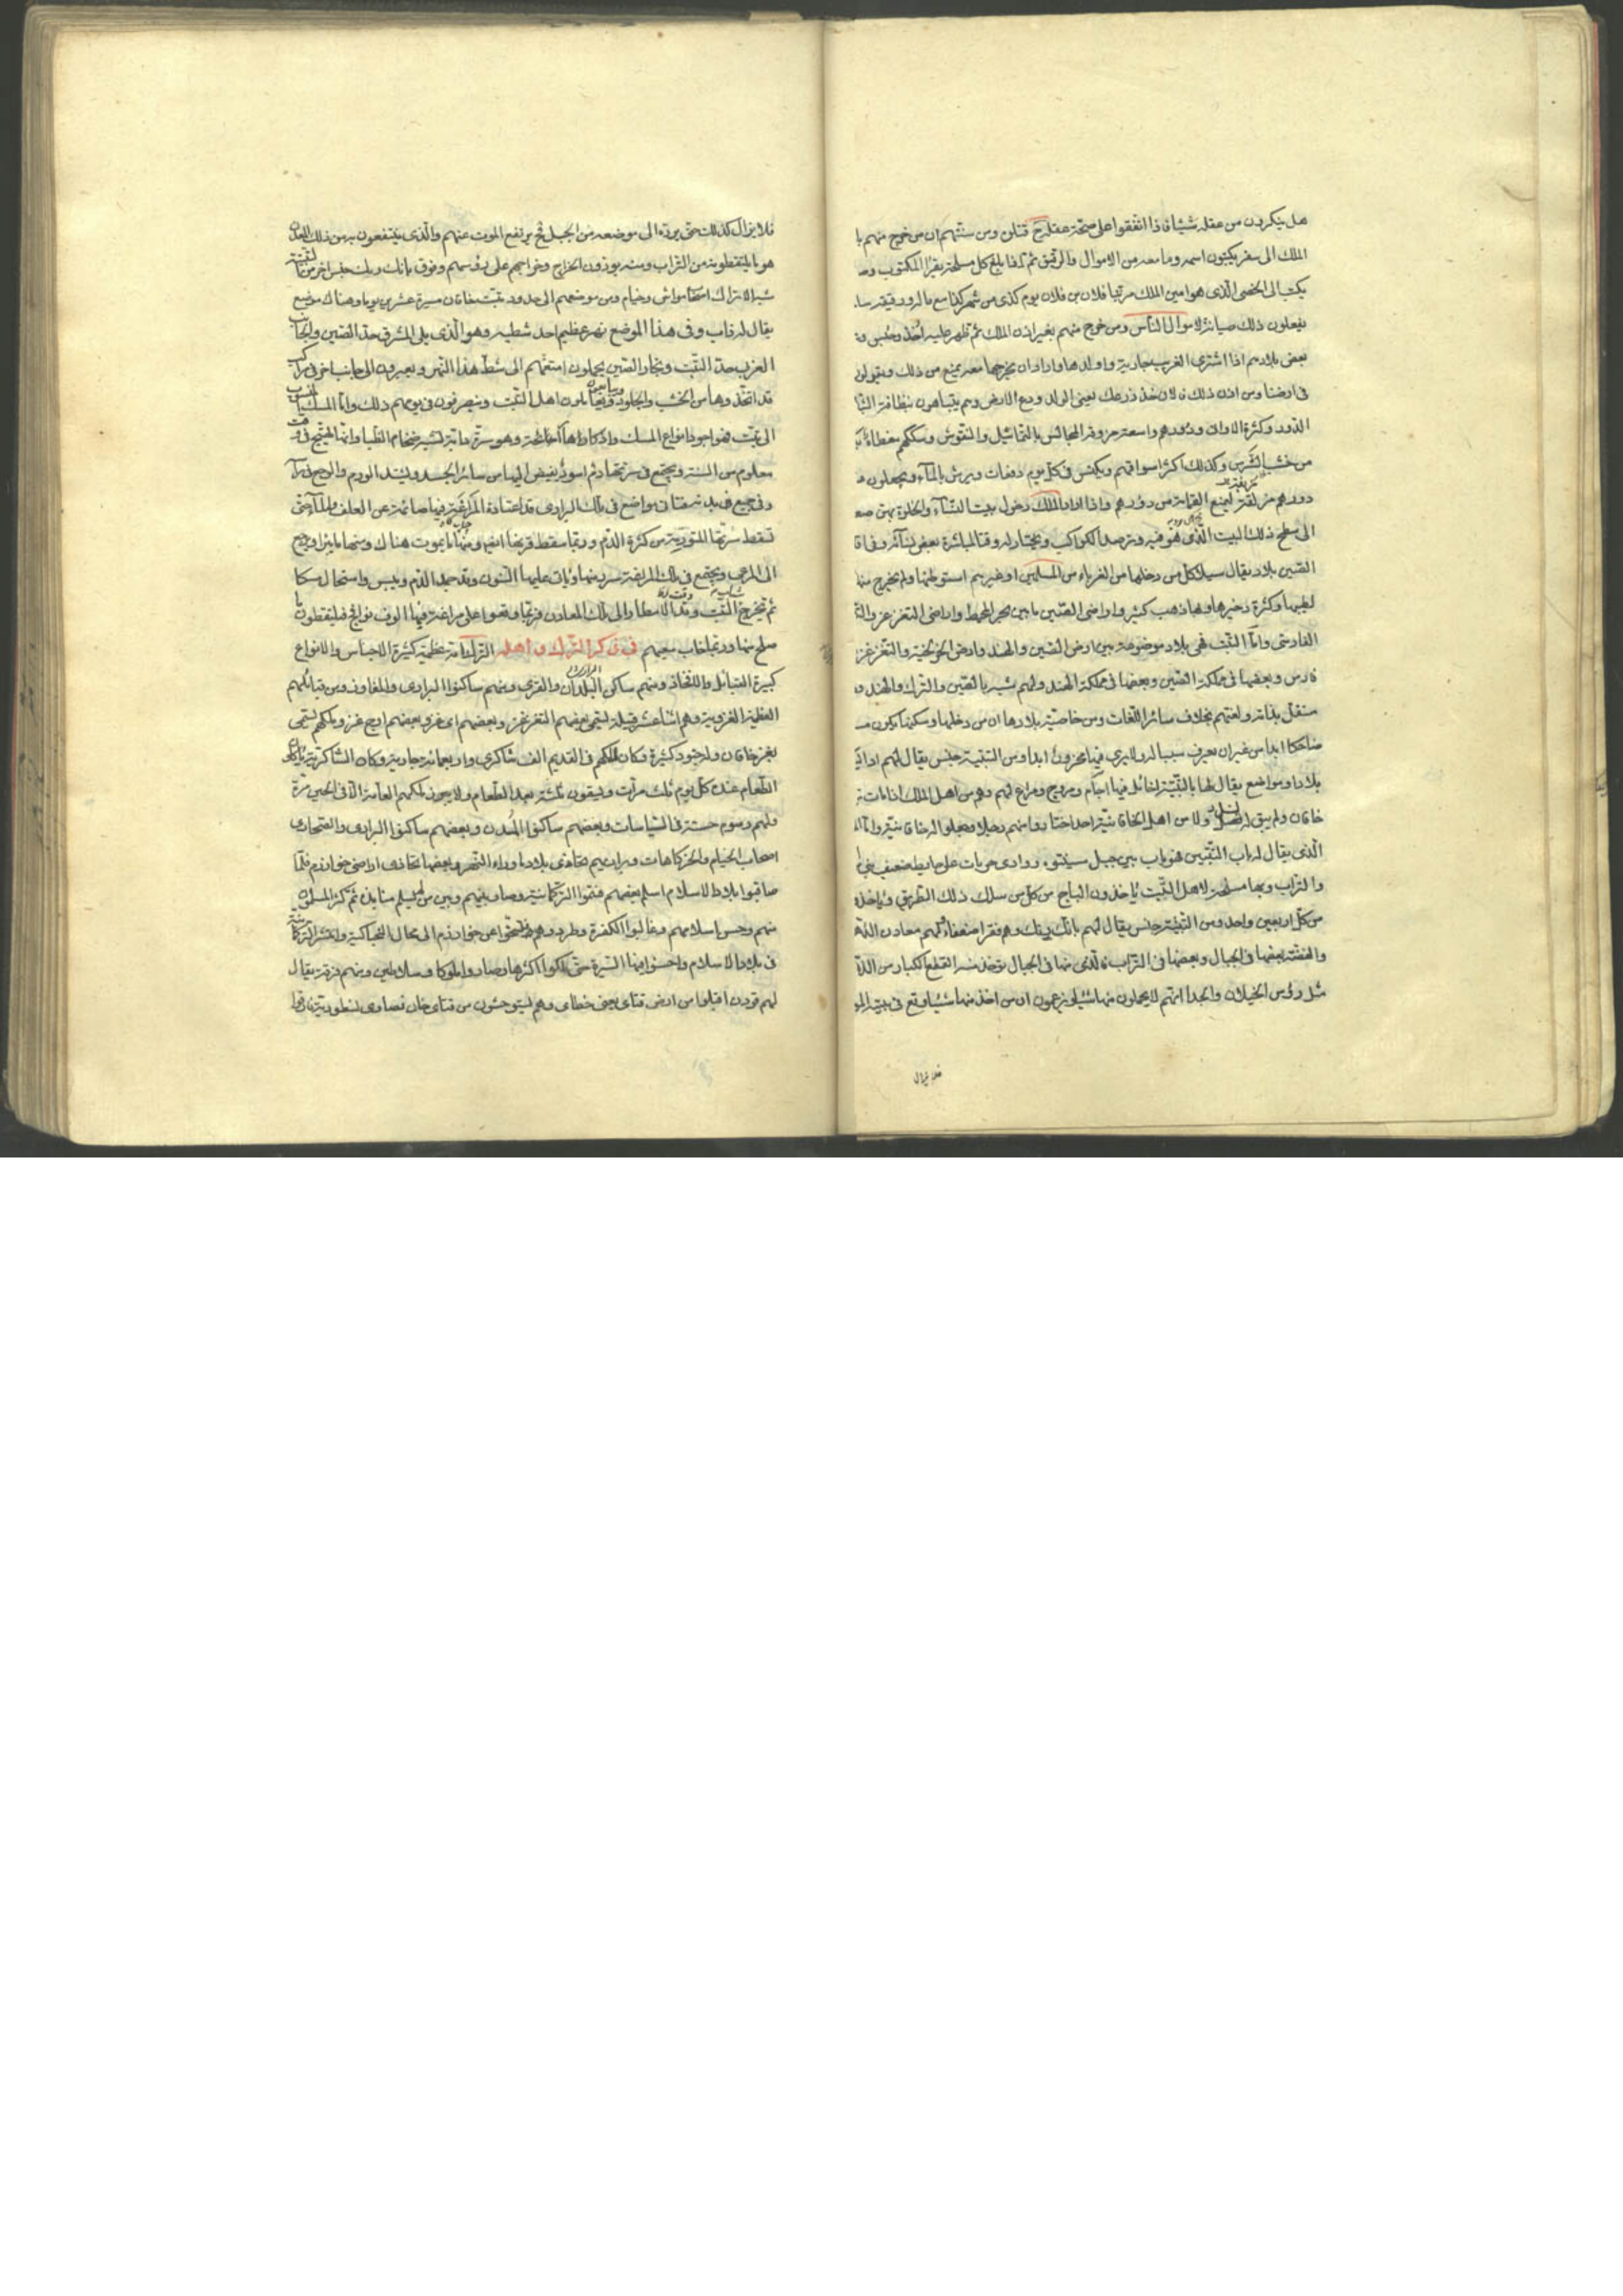 هل ينكرون من عقله شيئا فاذا اتفقوا على صحة عقله ح قتلن ومن سنتهم ان من خرج منهم با
الملك الى سفر يكتبون اسمه وما معه من الاموال والرقيق ثم كلما بلغ كل مسلحة يقرا المكتوب وصا
يكتب الى الخصى الذى هو امين الملك مر بنا فلان بن فلان يوم كذى من شهر كذا مع ماله ورقيقه سا
يفعلون ذلك صيانة لاموال الناس ومن خرج منهم بغير اذن الملك ثم ظهر عليه اخذ وحبس وفى
بعض بلادهم اذا اشترى الغريب جارية واولدها واراد ان يخرجها معه يمنع من ذلك ويقولون
فى ارضنا ومن اذن ذلك فالان خذ زرعك يعنى الولد ودع الارض وهم يتباهون بنظافة الثيا
الدور وكثرة الاوانى ودورهم واسعة مزوقة المجالس بالتماثيل والنقوش وسككهم مغطاة
من خشب الشربين وكذلك اكثر اسواقهم ويكنس فى كل يوم دفعات ويرش بالماء ويجعلون
دورهم مرتفعة ليمنع القمامة من دورهم واذا اراد الملك دخول بيت النساء والخلوة بهن صعد
الى سطح ذلك البيت الذى هو فيه ويترصد الكواكب ويختار له وقتا لمباشرة بعض نسائه وفى اقا
الصين بلاد يقال سيلا كل من دخلها من الغرباء من المسلمين او غيرهم استوطنها ولم يخرج منها
لطيبها وكثرة خيرها وبها ذهب كثير واراضى الصين ما بين بحر المحيط واراضى التغزغز والتبت
الفارسى واما التبت فهى بلاد موضوعة بين ارض الصين والهند وارض الخرلخية والتغزغز
فارس وبعضها فى مملكة الصين وبعضها فى مملكة الهند ولهم شبه بالصين والترك والهند و
مستقل بذاته ولغتهم بخلاف سائر اللغات ومن خاصية بلادها ان من دخلها وسكنها يكون
ضاحكا ابدا من غير ان يعرف سببا له ولا يرى فيها محزون ابدا ومن التبتية جنس يقال لهم
بلادا ومواضع يقال لها بالتبتية فيها آجام ومروج ومراع لهم وهم من اهل الملك اذا مات
خاقان ولم يبق له نسل ولا من اهل الخاقانية احد اختاروا منهم رجلا وجعلوا له خاقانية واما
الذى يقال له باب التبتين فهو باب بين جبل سيختو ووادى جريات على حايط ضعيف بنى
والتراب وبها مسلحة لاهل التبت ياخذون الباج من كل من سلك ذلك الطريق وياخذون
من كل اربعين واحد ومن التبتية جنس يقال لهم بانك يرنك وهم فقراء ضعفاء لهم معادن الذهب
والفضة بعضها فى الجبال وبعضها فى التراب فالذى منها فى الجبال يوجد منه القطع الكبار من الذ
مثل رؤس الخيلان والجدا انهم لا يحملون منها شيئا ويزعمون ان من اخذ منها شيئا وقع فى بيته المو
فلا يزال
فلا يزال كذلك حتى يرده الى موضعه من الجبل فح يرتفع الموت عنهم والذى ينتفعون به من ذلك المعدن
هو ما يلتقطونه من التراب ومنه يودون الخراج وخراجهم على رؤسهم وفوق بانك ورنك جنس اخر من التبتية
شبه الاتراك اصحاب مواش وخيام ومن موضعهم الى حدود تبت خاقان مسيرة عشرين يوما وهناك موضع
يقال له وفى هذا الموضع نهر عظيم احد شطيه وهو الذى يلى المشرق حد الصين والجانب
الغربى حد التبت وتجار الصين يحملون امتعتهم الى شط هذا النهر ويعبرون الى جانب اخر فى مراكب
قد اتخذوها من الخشب والجلود وتعاملون اهل التبت وينصرفون فى يومهم ذلك واما المسك المنسوب
الى تبت فهو اجود انواع المسك واذكاها رائحة وهو سرة دابة تشبه ضخام الظباء وانما تهيج فى وقت
معلوم من السنة ويجتمع فى سرتها دم اسود يفيض اليها من سائر الجسد ويشتد الورم والوجع فى
وفى جميع فى بدنه ومواضع فى تلك البرارى قد اعتادة المراغة فيها صائمة عن العلف والماء حتى
تسقط سرتها المتورمة من كثرة الدم وربما سقط قرنها ايضا ومنها ما يموت هناك ومنها ما يبرا ويرجع
الى المرعى ويجتمع فى تلك المراغة سرر منها ويأتى عليها السنون وقد جمد الدم ويبس واستحال مسكا
ثم يخرج التبت وقت الامطار الى تلك المعادن فربما وقعوا على مراغة فيها الوف نوافج فيلتقطون ما
صلح منها وربما خاب سعيهم فى ذكر الترك واهله الترك امة عظيمة كثيرة الاجناس والانواع
كبيرة القبائل والافخاذ ومنهم ساكن البلدان والقرى ومنهم ساكنوا البرارى والمفاوز ومن قبائلهم
العظيمة الغزية وهم اثنا عشر قبيلة تسمى بعضهم التغزغز وبعضهم اى غر وبعضهم اوج غز وملكهم يسمى
تغز خاقان وله جنود كثيرة وكان لملكهم فى القديم الف شاكرى واربعمائة جارية وكان الشاكرية ياكلون
الطعام عنده كل يوم ثلث مرات ويسقون ثلثة بعد الطعام ولا يرون ملكهم العامة الا فى الحين مرة
ولهم رسوم حسنة فى السياسات وبعضهم ساكنوا المدن وبعضهم ساكنوا البرارى والصحارى
اصحاب الخيام والخركاهات وبراريهم تحاذى بلاد ما وراء النهر وبعضها تحاذى اراضى خوارزم فلما
صاقبوا بلاد الاسلام اسلم بعضهم فسموا التركمانية وصار بينهم وبين من لم يسلم منابذة ثم كثر المسلمون
منهم وحسن اسلامهم وغالبوا الكفرة وطردوهم فتنحوا عن خوارزم الى محال البجناكية وانتشر التركمانية
فى بلاد الاسلام واحسنوا فيها السيرة حتى ملكوا اكثرها وصاروا ملوكا وسلاطين ومنهم فرقة يقال
لهم قون اقبلوا من ارض قتاى يعنى خطاى وهم يستوحشون من قتاى خان نصارى نسطورية